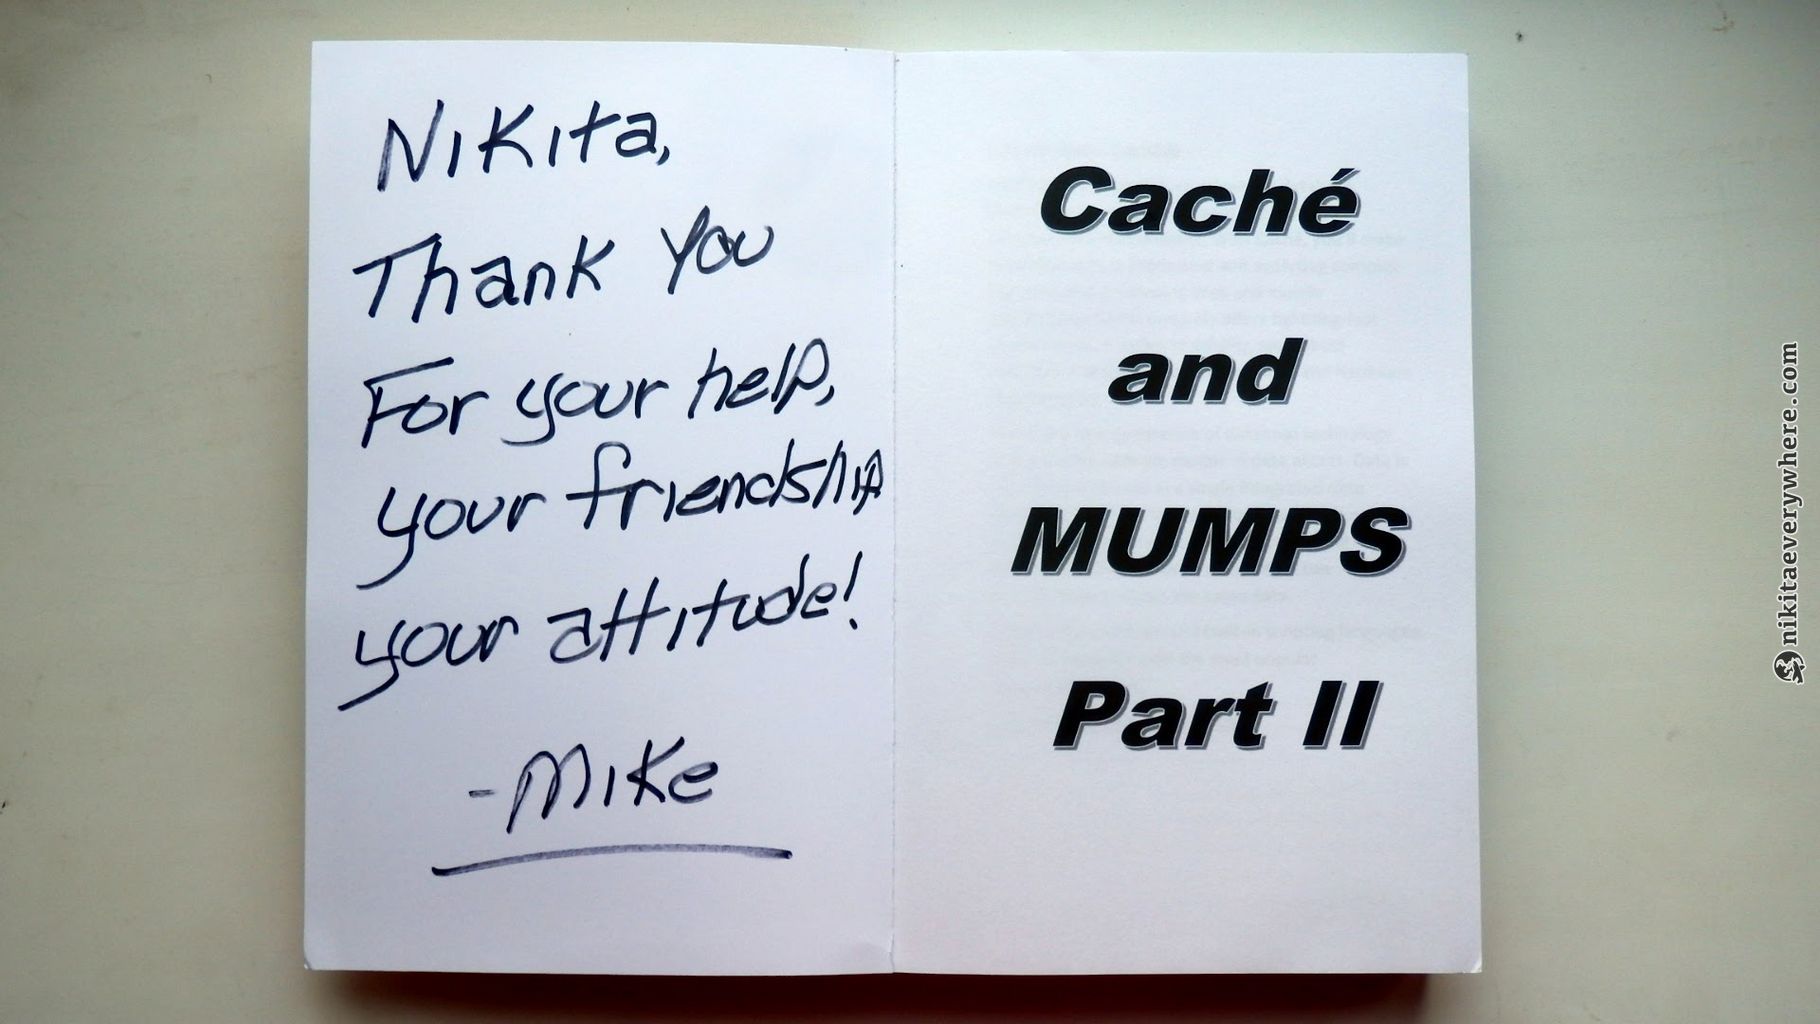 Nikita,
Thank you
For your help,
your friendship
your attitude!
-Mike
Caché
and
MUMPS
Part II
nikitaeverywhere.com